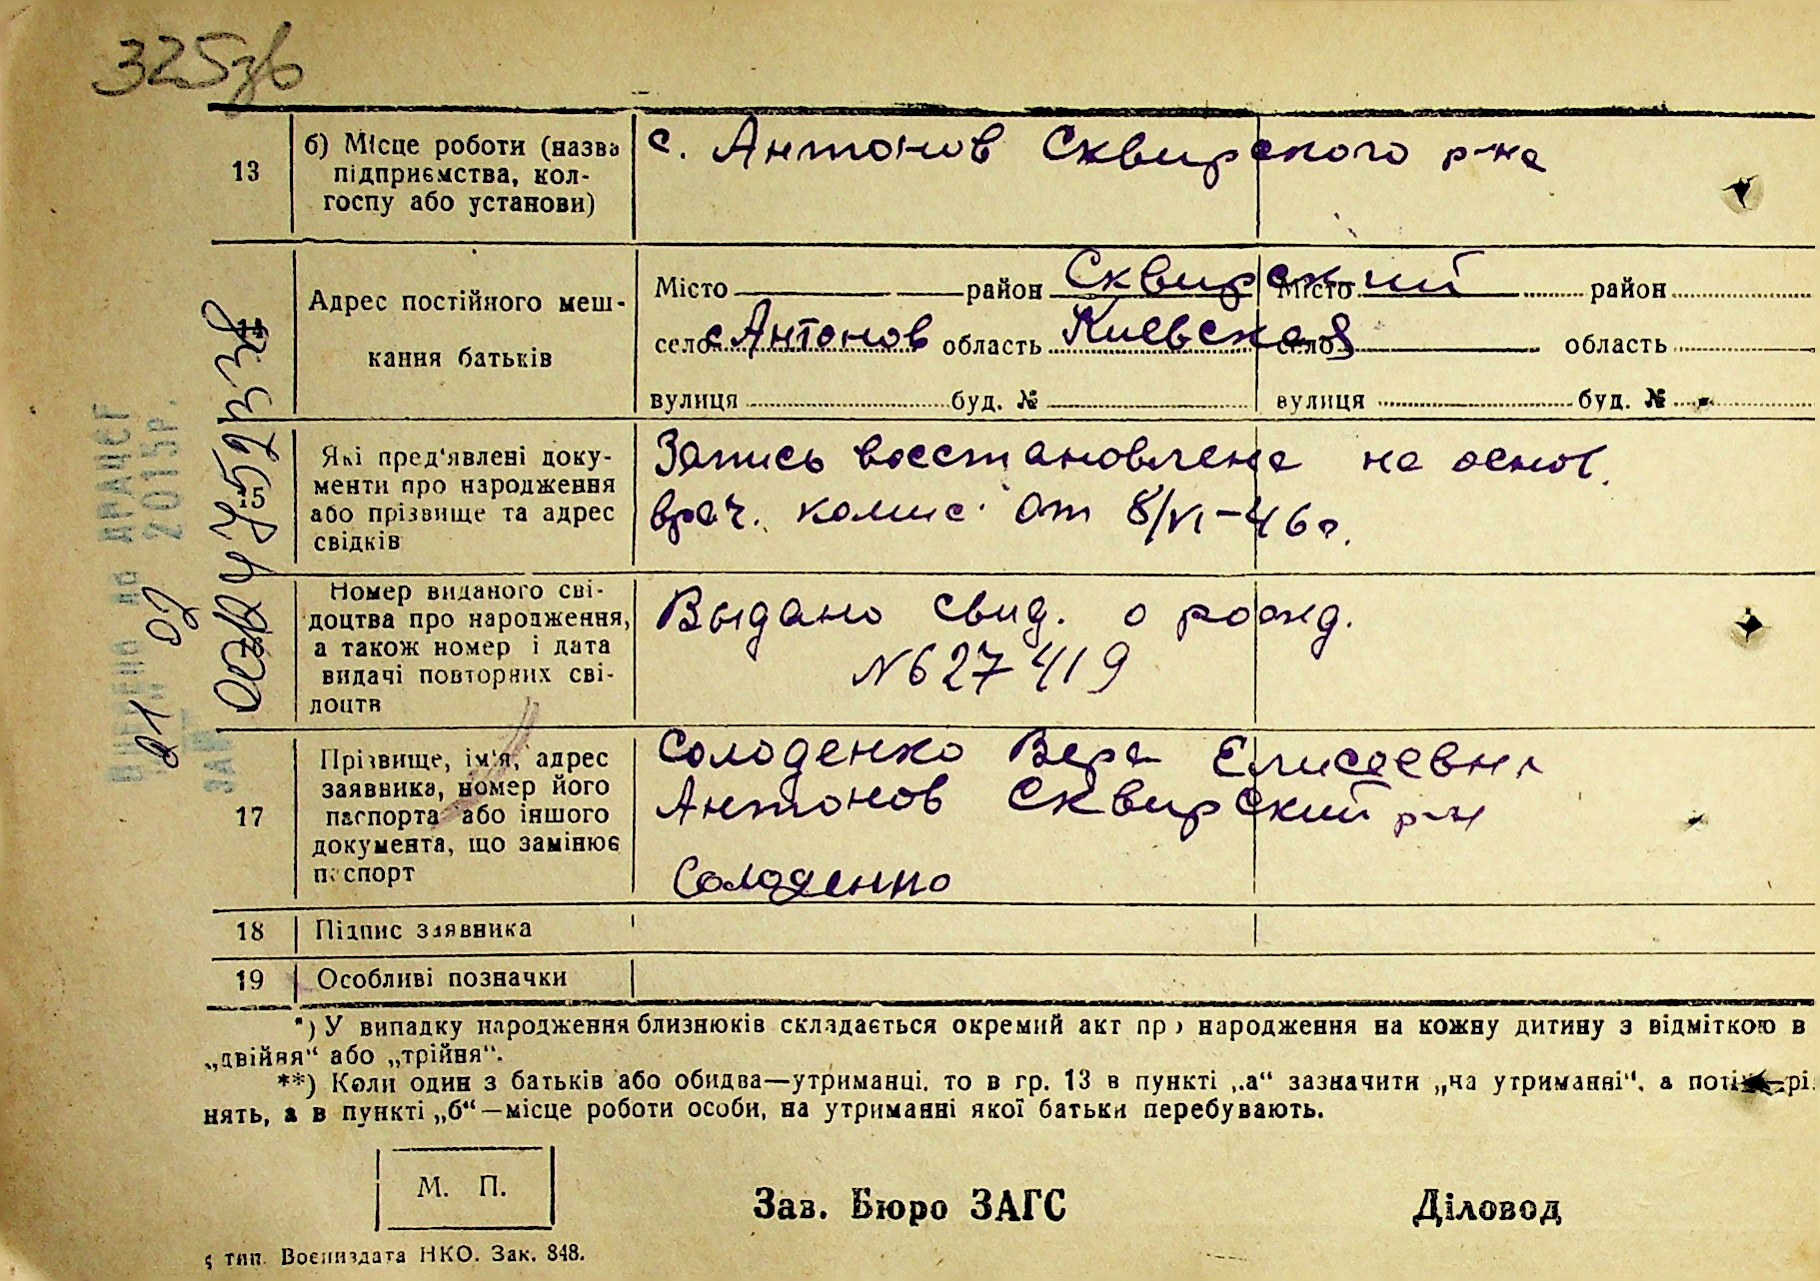 325зв
13
б) Місце роботи (назва
підприємства, кол-
госпу або установи)
с. Антонов Сквирского р-на
Адрес постійного меш-
кання батьків
Місто район Сквирский Місто район
село с Антонов область Киевская село область
вулиця буд. № вулиця буд. №
Які пред'явлені доку-
менти про народження
або прізвище та адрес
свідків
Запись восстановлена на основ.
врач. комис. от 8/VI-46г.
Номер виданого сві-
доцтва про народження,
а також номер і дата
видачі повторних сві-
доцтв
Выдано свид. о рожд.
N627419
17
Прізвище, ім'я, адрес
заявника, номер його
паспорта або іншого
документа, що замінює
паспорт
Солоденко Вера Елисеевна
Антонов Сквирский р-н
Солоденко
18 Підпис заявника
19 Особливі позначки
*) У випадку народження близнюків складається окремий акт про народження на кожну дитину з відміткою в
„двійня“ або „трійня“.
**) Коли один з батьків або обидва—утриманці, то в гр. 13 в пункті „а“ зазначити „на утриманні“, а
нять, а в пункті „б“—місце роботи особи, на утриманні якої батьки перебувають.
М. П.
Зав. Бюро ЗАГС Діловод
тип. Воениздата НКО. Зак. 848.
ДРАЦСГ
2015р.
21 02